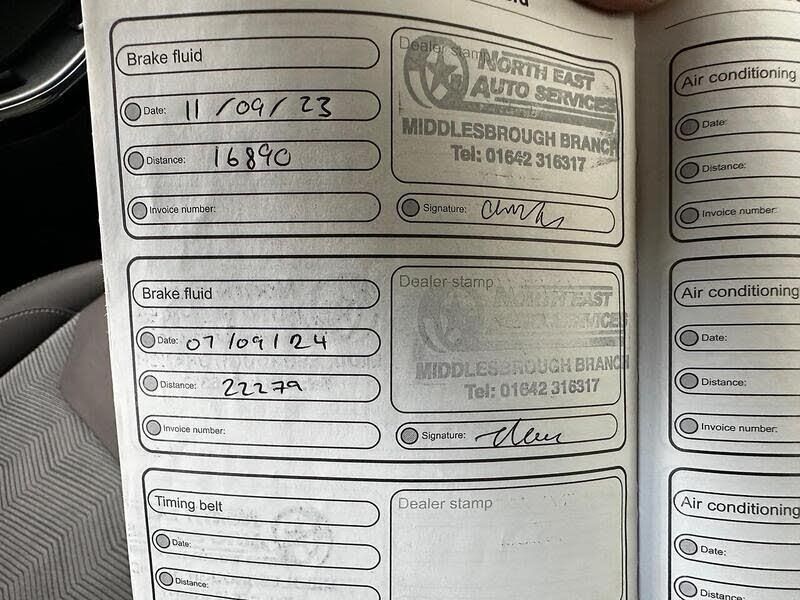 Brake fluid
Date: 11/09/23
Distance: 16890
Invoice number:
Dealer stamp
NORTH EAST
AUTO SERVICES
MIDDLESBROUGH BRANCH
Tel: 01642 316317
Signature:
Brake fluid
Date: 07/09/24
Distance: 22279
Invoice number:
Dealer stamp
NORTH EAST
AUTO SERVICES
MIDDLESBROUGH BRANCH
Tel: 01642 316317
Signature:
Timing belt
Date:
Distance:
Dealer stamp
Air conditioning
Date:
Distance:
Invoice number:
Air conditioning
Date:
Distance:
Invoice number:
Air conditioning
Date:
Distance: